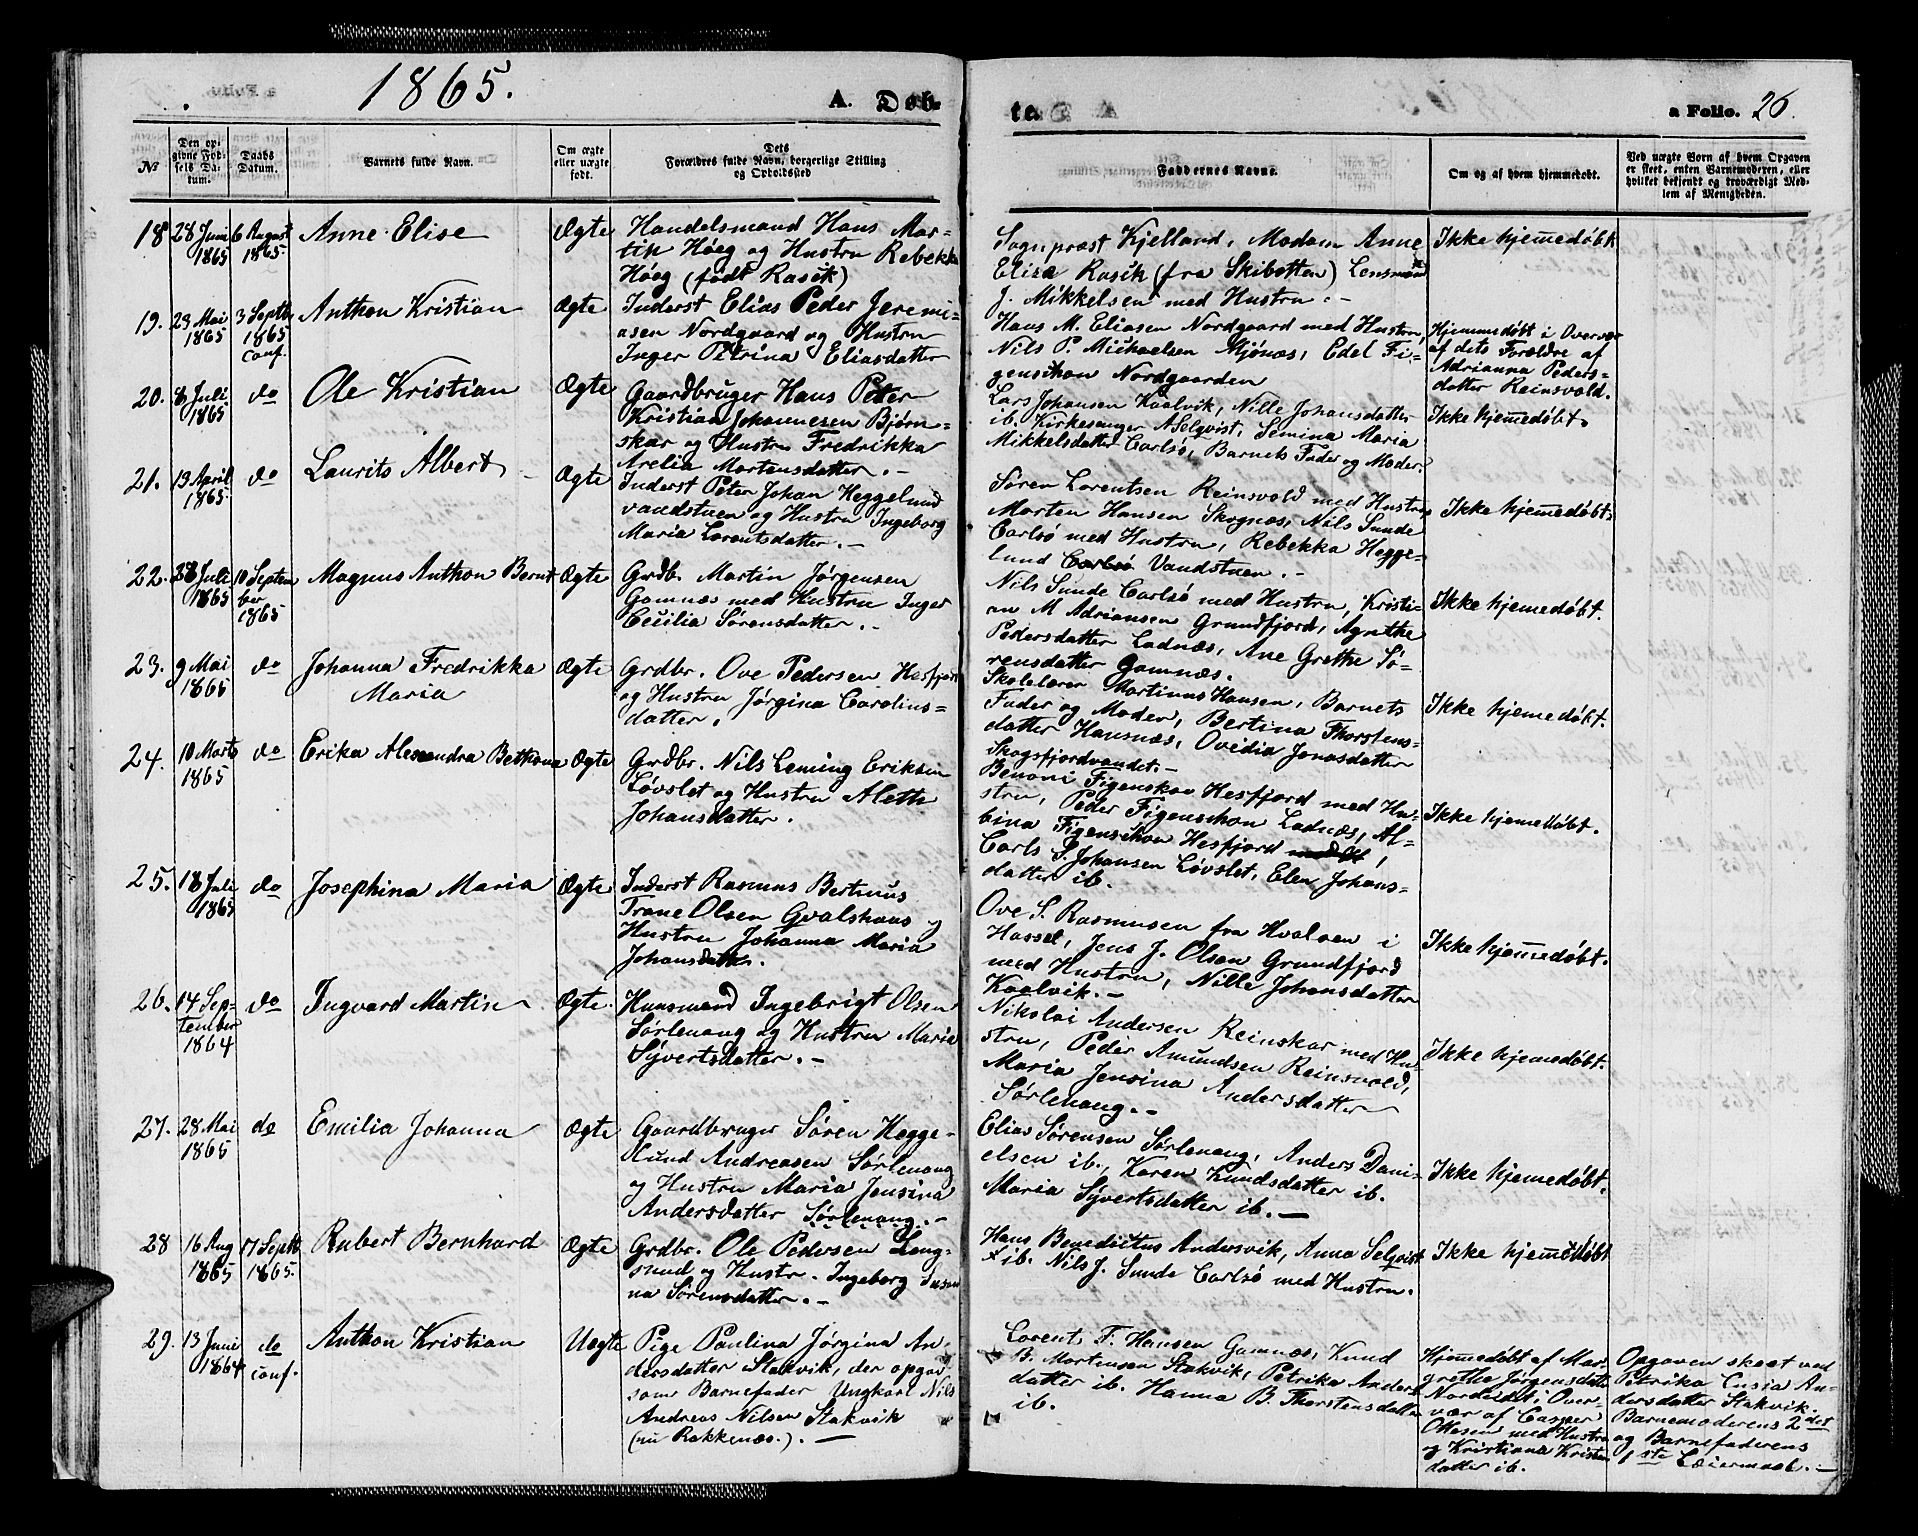 1865.
A. Døb-
te.
a Folio. 26.
№
Den op-
givne Fød-
sels Da-
tum.
Daabs
Datum.
Barnets fulde Navn.
Om ægte
eller uægte
født.
Dets
Forældres fulde Navn, borgerlige Stilling
og Opholdssted
Faddernes Navne.
Om og af hvem hjemmedøbt.
Ved uægte Børn af hvem Opgaven
er skeet, enten Barnemoderen, eller
hvilket bekjendt og troværdigt Med-
lem af Menigheden.
18
28 Juni
1865
6 August
1865.
Anne Elise
Ægte
Handelsmand Hans Mar-
tin Høeg og Hustru Rebekka
Høeg (født Rasch)
Sognepræst Kjelland, Madam Anne
Elise Rasch (fra Skibotten) Lensmand
J. Mikkelsen med Hustru. -
Ikke hjemmedøbt
19.
23 Mai
1865
3 Septb.
1865
conf.
Anthon Kristian
Ægte
Inderst Elias Peder Jeremi-
asen Nordgaard og Hustru
Inger Petrina Eliasdatter
Hans M. Eliasen Nordgaard med Hustru,
Nils P. Michaelsen Mjønæs, Edel Fi-
genschou Nordgaarden
Hjemmedøbt i Overvær
af dets Forældre af
Adrianna Peders-
datter Reinsvold.
20.
8 Juli
1865
do
Ole Kristian
Ægte
Gaardbruger Hans Peter
Kristian Johannesen Bjørn-
skar og Hustru Fredrikka
Arelia Mortensdatter. -
Lars Johansen Kaalvik, Nille Johansdatter
ib. Kirkesanger A Selqvist, Semina Maria
Mikkelsdatter Carlsø, Barnets Fader og Moder.
Ikke hjemmedøbt.
21.
19 April
1865.
do
Laurits Albert
Ægte
Inderst Peter Johan Heggelund
Vandstuen og Hustru Ingeborg
Maria Lorentsdatter. -
Søren Lorentsen Reinsvold med Hustru,
Morten Hansen Skognæs, Nils Sunde
Carlsø med Hustru, Rebekka Hegge-
lund Carlsø Vandstuen. -
Ikke hjemmedøbt.
22.
28 Juli
1865
10 Septem
ber
1865
Magnus Anthon Bernt
Ægte
Grdb. Martin Jørgensen
Gamnæs med Hustru Inger
Cecilia Sørensdatter. -
Nils Sunde Carlsø med Hustru, Kristi-
an M Adriansen Grundfjord, Agrethe
Pedersdatter Ladnæs, Ane Grethe Sø-
rensdatter Gamnæs.
Ikke hjemmedøbt.
23.
9 Mai
1865
do
Johanna Fredrikka
Maria
Ægte
Grdbr. Ove Pedersen Hesfjord
og Hustru Jørgina Carolius-
datter.
Skolelærer Martinus Hansen, Barnets
Fader og Moder, Bertina Thorstens-
datter Hansnæs, Ovidia Jonasdatter
Skogsfjordvandet. -
Ikke hjemmedøbt.
24.
10 Marts
1865
do
Erika Alexandra Bethona
Ægte
Grdbr. Nils Leming Eriksen
Løvslet og Hustru Aleth
Johansdatter.
Benoni Figenskov Hesfjord med Hu-
stru, Peder Figenschou Ladnæs, Al-
bina Figenschou Hesfjord,
Carls S. Johansen Løvslet, Elen Johans-
datter ib.
Ikke hjemmedøbt.
25.
18 Juli
1865
do
Josephina Maria
Ægte
Inderst Rasmus Bertinus
Trane Olsen Gvalshaus og
Hustru Johanna Maria
Johansdatter.
Ove S. Rasmussen fra Hvalsen i
Hassel, Jens J. Olsen Grundfjord
med Hustru, Nille Johansdatter
Kaalvik. -
Ikke hjemmedøbt.
26.
14 Sep-
tember
1864
do
Ingvard Martin
Ægte.
Huusmand Ingebrigt Olsen
Sørlenang og Hustru Maria
Syvertsdatter. -
Nikolai Andersen Reinskar med Hu-
stru, Peder Amundsen Reinsvold,
Maria Jensina Andersdatter
Sørlenang. -
Ikke hjemmedøbt.
27.
28 Mai
1865
do
Emilia Johanna
Ægte
Gaardbruger Søren Hegge-
lund Andreasen Sørlenang
og Hustru Maria Jensina
Andersdatter Sørlenang. -
Elias Sørensen Sørlenang, Anders Dani-
elsen ib., Karen Knudsdatter ib.
Maria Syvertsdatter ib. -
Ikke hjemmedøbt.
28
16 Aug
1865
17 Septb
1865.
Rubert Bernhard
Ægte
Grdbr. Ole Pedersen Leng-
sund og Hustr. Ingeborg Susan
na Sørensdatter. -
Hans Benedictus Andersvik, Anna Selqvist
ib. Nils J. Sunde Carlsø med Hustru.
Ikke hjemmedøbt
29.
13 Juni
1864
do
conf.
Anthon Kristian
Uegte
Pige Paulina Jørgina An-
dersdatter Stakvik, der opgav
som Barnefader Ungkarl Nils
Andreas Nilsen Stakvik
(nu Rakkenæs.). -
Lorents F. Hansen Gamnæs, Knud
B. Mortensen Stakvik, Petrika Anders-
datter ib. Hanna B. Thorstensdatter
ib.
Hjemmedøbt af Mar-
grethe Jørgensdatter
Nordeidet i Over-
vær af Casper
Ottesen med Hustru
og Kristiana Kristen
datter ib.
Opgaven skeet ved
Petrika Cusia An-
dersdatter Stakvik.
Barnemoderens 2det
og Barnefaderens
1ste Leiermaal. -